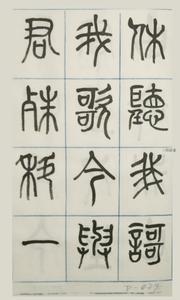 休聽我謌
我歌今與
君殊科一